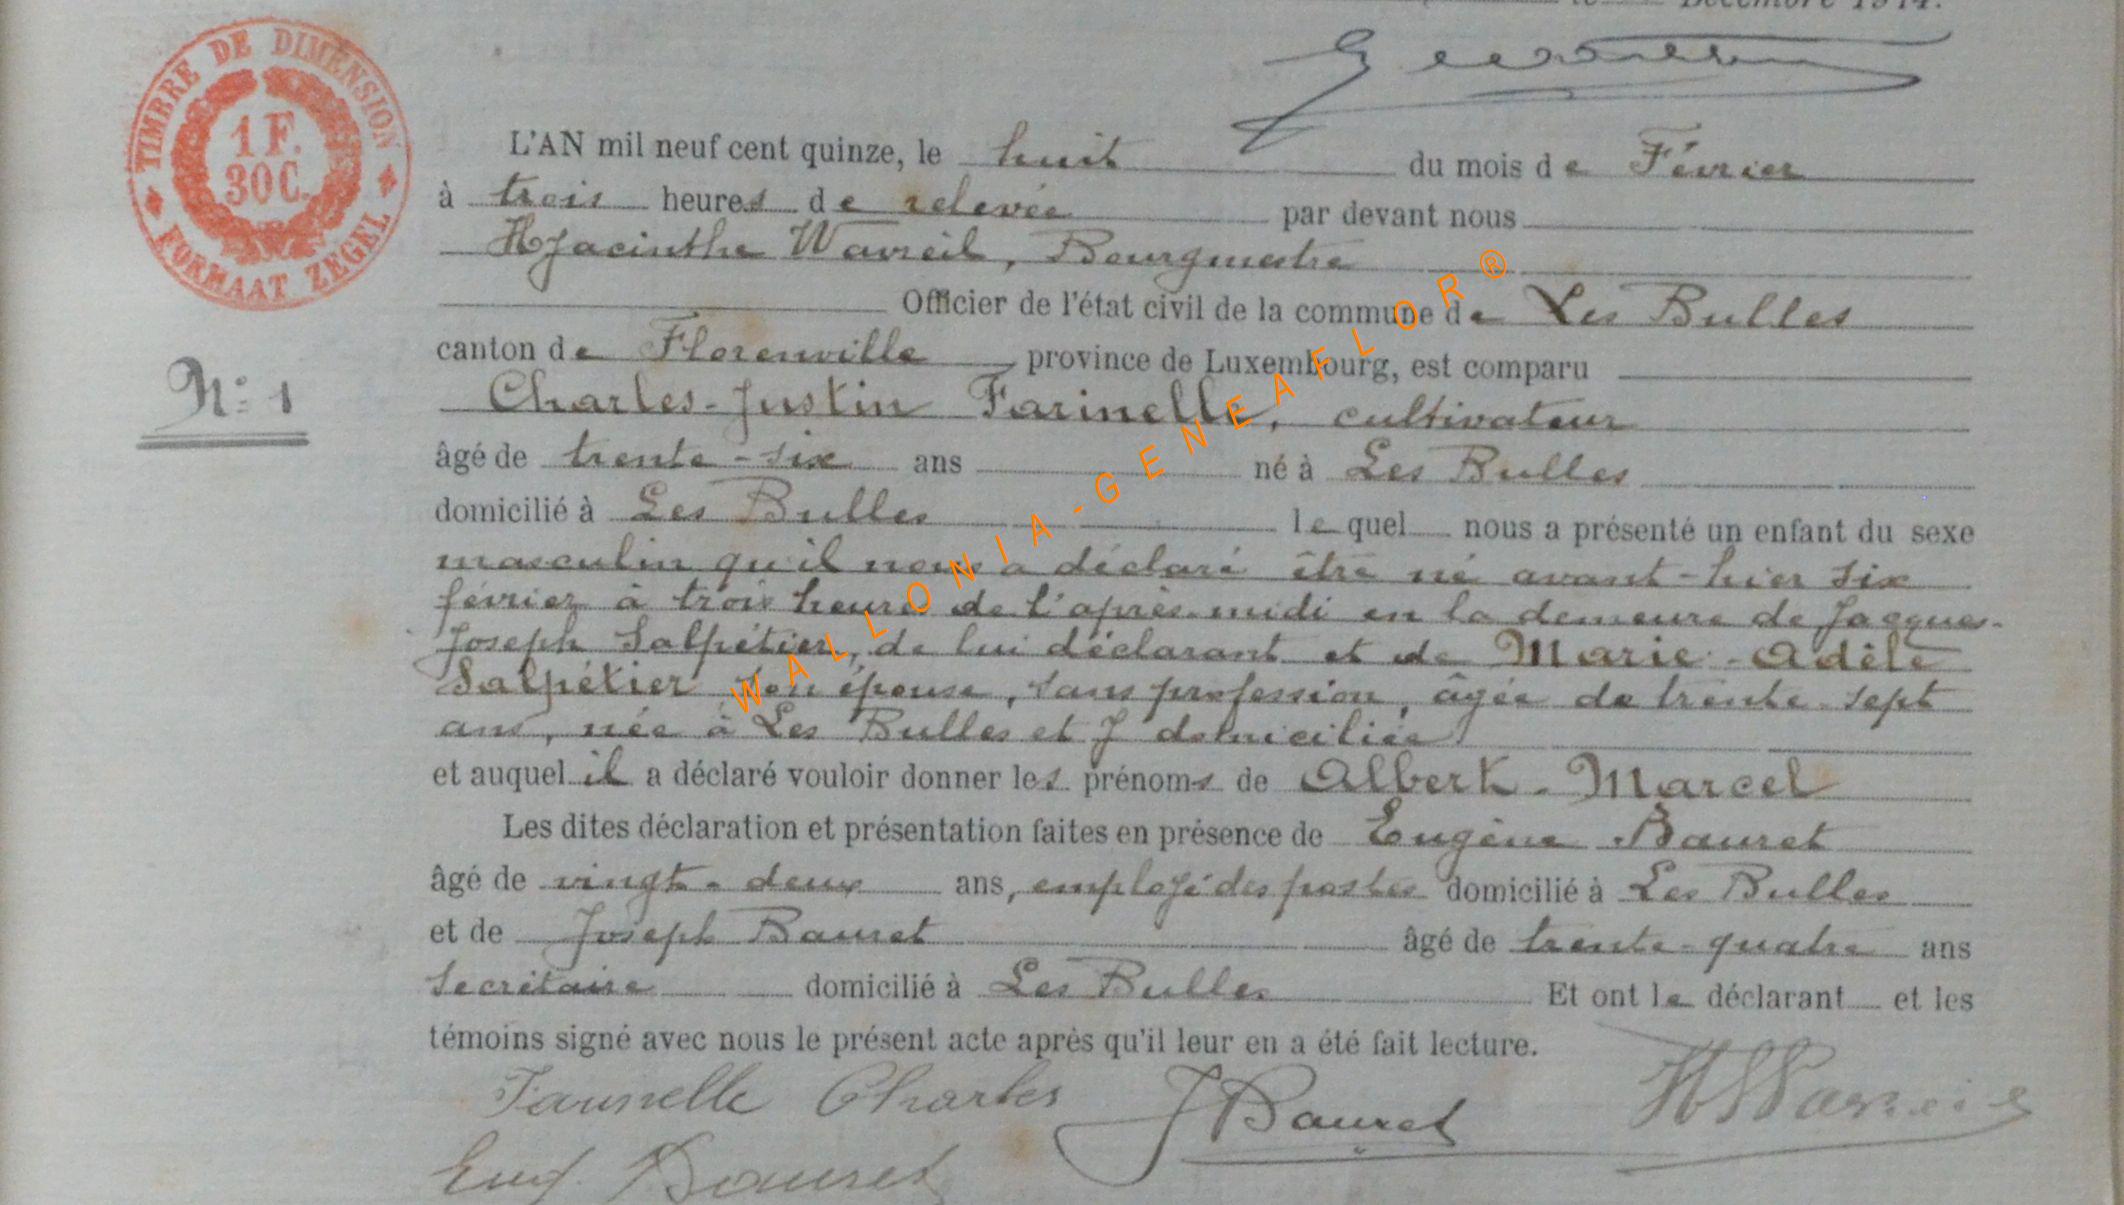 le Décembre 1914.
TIMBRE DE DIMENSION
1 F.
30 C.
FORMAAT ZEGEL
L'AN mil neuf cent quinze, le huit du mois de Février
à trois heures de relevée par devant nous
Hyacinthe Wavreil, Bourgmestre
Officier de l'état civil de la commune de Les Bulles
canton de Florenville province de Luxembourg, est comparu
N° 1
Charles-Justin Farinelle, cultivateur
âgé de trente-six ans né à Les Bulles
domicilié à Les Bulles lequel nous a présenté un enfant du sexe
masculin qu'il nous a déclaré être né avant-hier six
février à trois heures de l'après-midi en la demeure de Jacques-
Joseph Salpétier, de lui déclarant et de Marie-Adèle
Salpétier son épouse, sans profession, âgée de trente-sept
ans, née à Les Bulles et y domiciliée
et auquel il a déclaré vouloir donner les prénoms de Albert-Marcel
Les dites déclaration et présentation faites en présence de Eugène Bauret
âgé de vingt-deux ans, employé des postes domicilié à Les Bulles
et de Joseph Bauret âgé de trente-quatre ans
secrétaire domicilié à Les Bulles Et ont le déclarant et les
témoins signé avec nous le présent acte après qu'il leur en a été fait lecture.
Farinelle Charles J Bauret H Wavreil
Eug. Bauret
WALLONIA-GENEAFLOR®